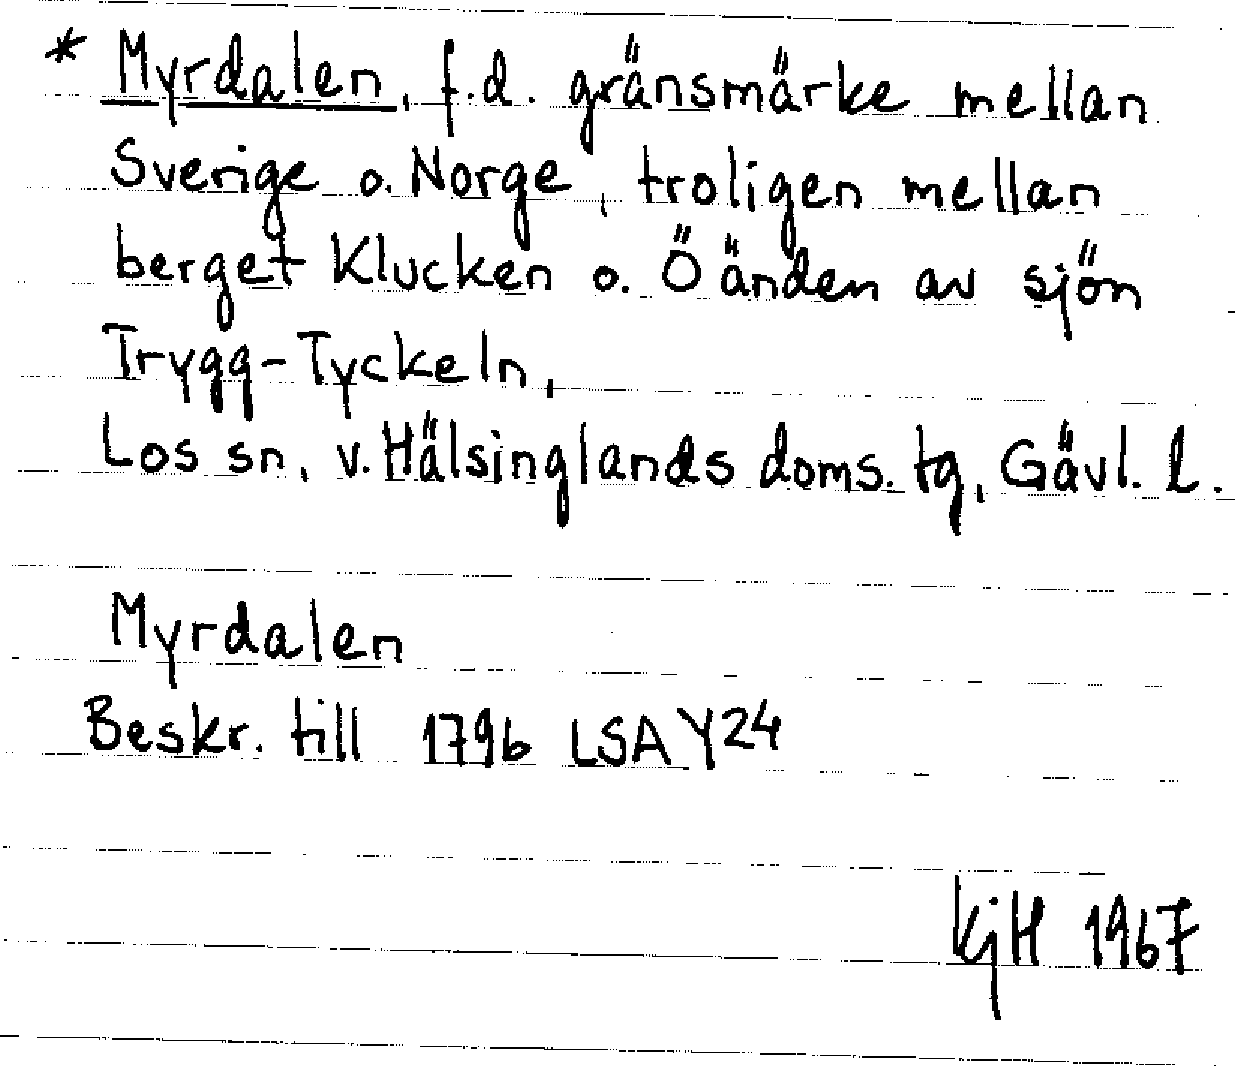 * Myrdalen, f.d. gränsmärke mellan
Sverige o. Norge, troligen mellan
berget Klucken o. Ö änden av sjön
Trygg-Tyckeln,
Los sn, v. Hälsinglands doms. tg, Gävl. l.
Myrdalen
Beskr. till 1796 LSA Y24
KjH 1967